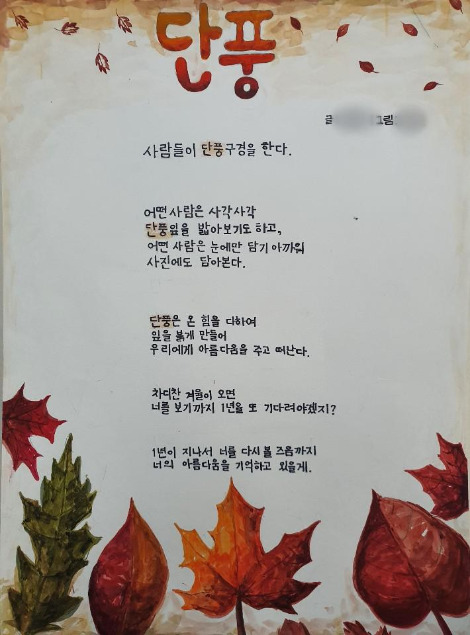 단풍
글 그림
사람들이 단풍구경을 한다.
어떤 사람은 사각사각
단풍잎을 밟아보기도 하고,
어떤 사람은 눈에만 담기 아까워
사진에도 담아본다.
단풍은 온 힘을 다하여
잎을 붉게 만들어
우리에게 아름다움을 주고 떠난다.
차디찬 겨울이 오면
너를 보기까지 1년을 또 기다려야겠지?
1년이 지나서 너를 다시 볼 즈음까지
너의 아름다움을 기억하고 있을게.